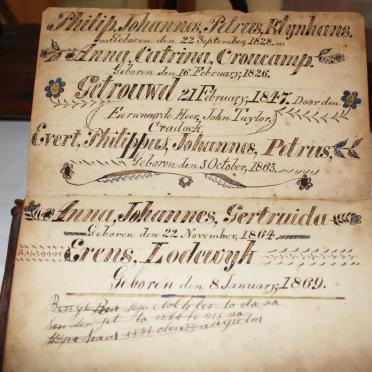 Philip, Johannes, Petrus, Klynhans.
Geboren den 22 September, 1828. en
Anna, Catrina, Croucamp,
Geboren den 16 February, 1826.
Getrouwd 21 February, 1847. Door den
Eerwaarde Heer, John Taylor,
Cradock,
Evert, Philippus, Johannes, Petrus,
Geboren den 3 October, 1863.
Anna, Johannes, Gertruida
Geboren den 22 November, 1864
Erens, Lodewyk
Geboren den 8 January, 1869.